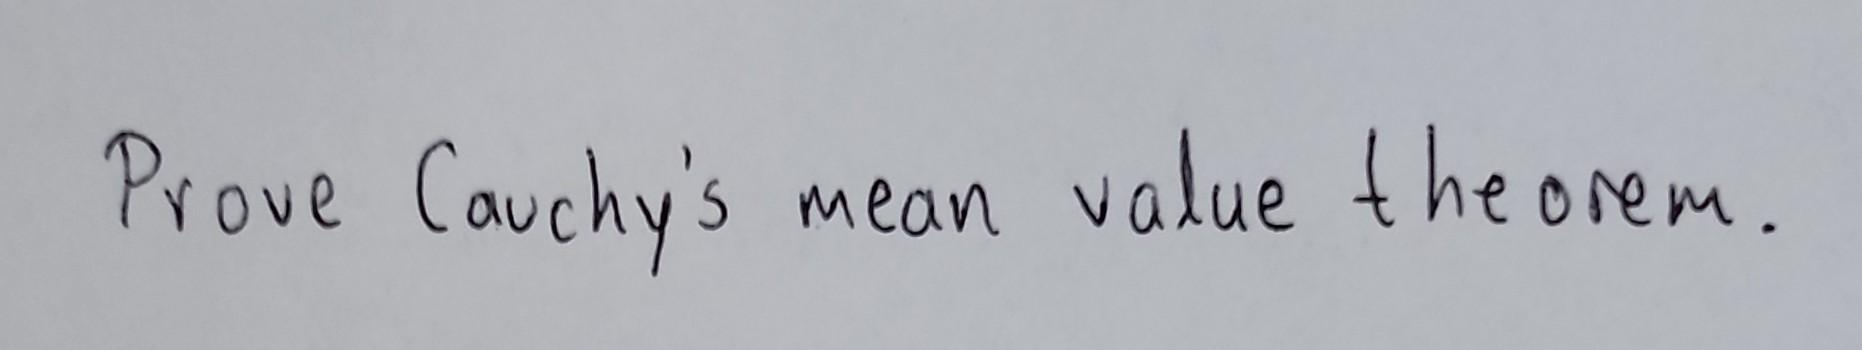 Prove Cauchy's mean value theorem.